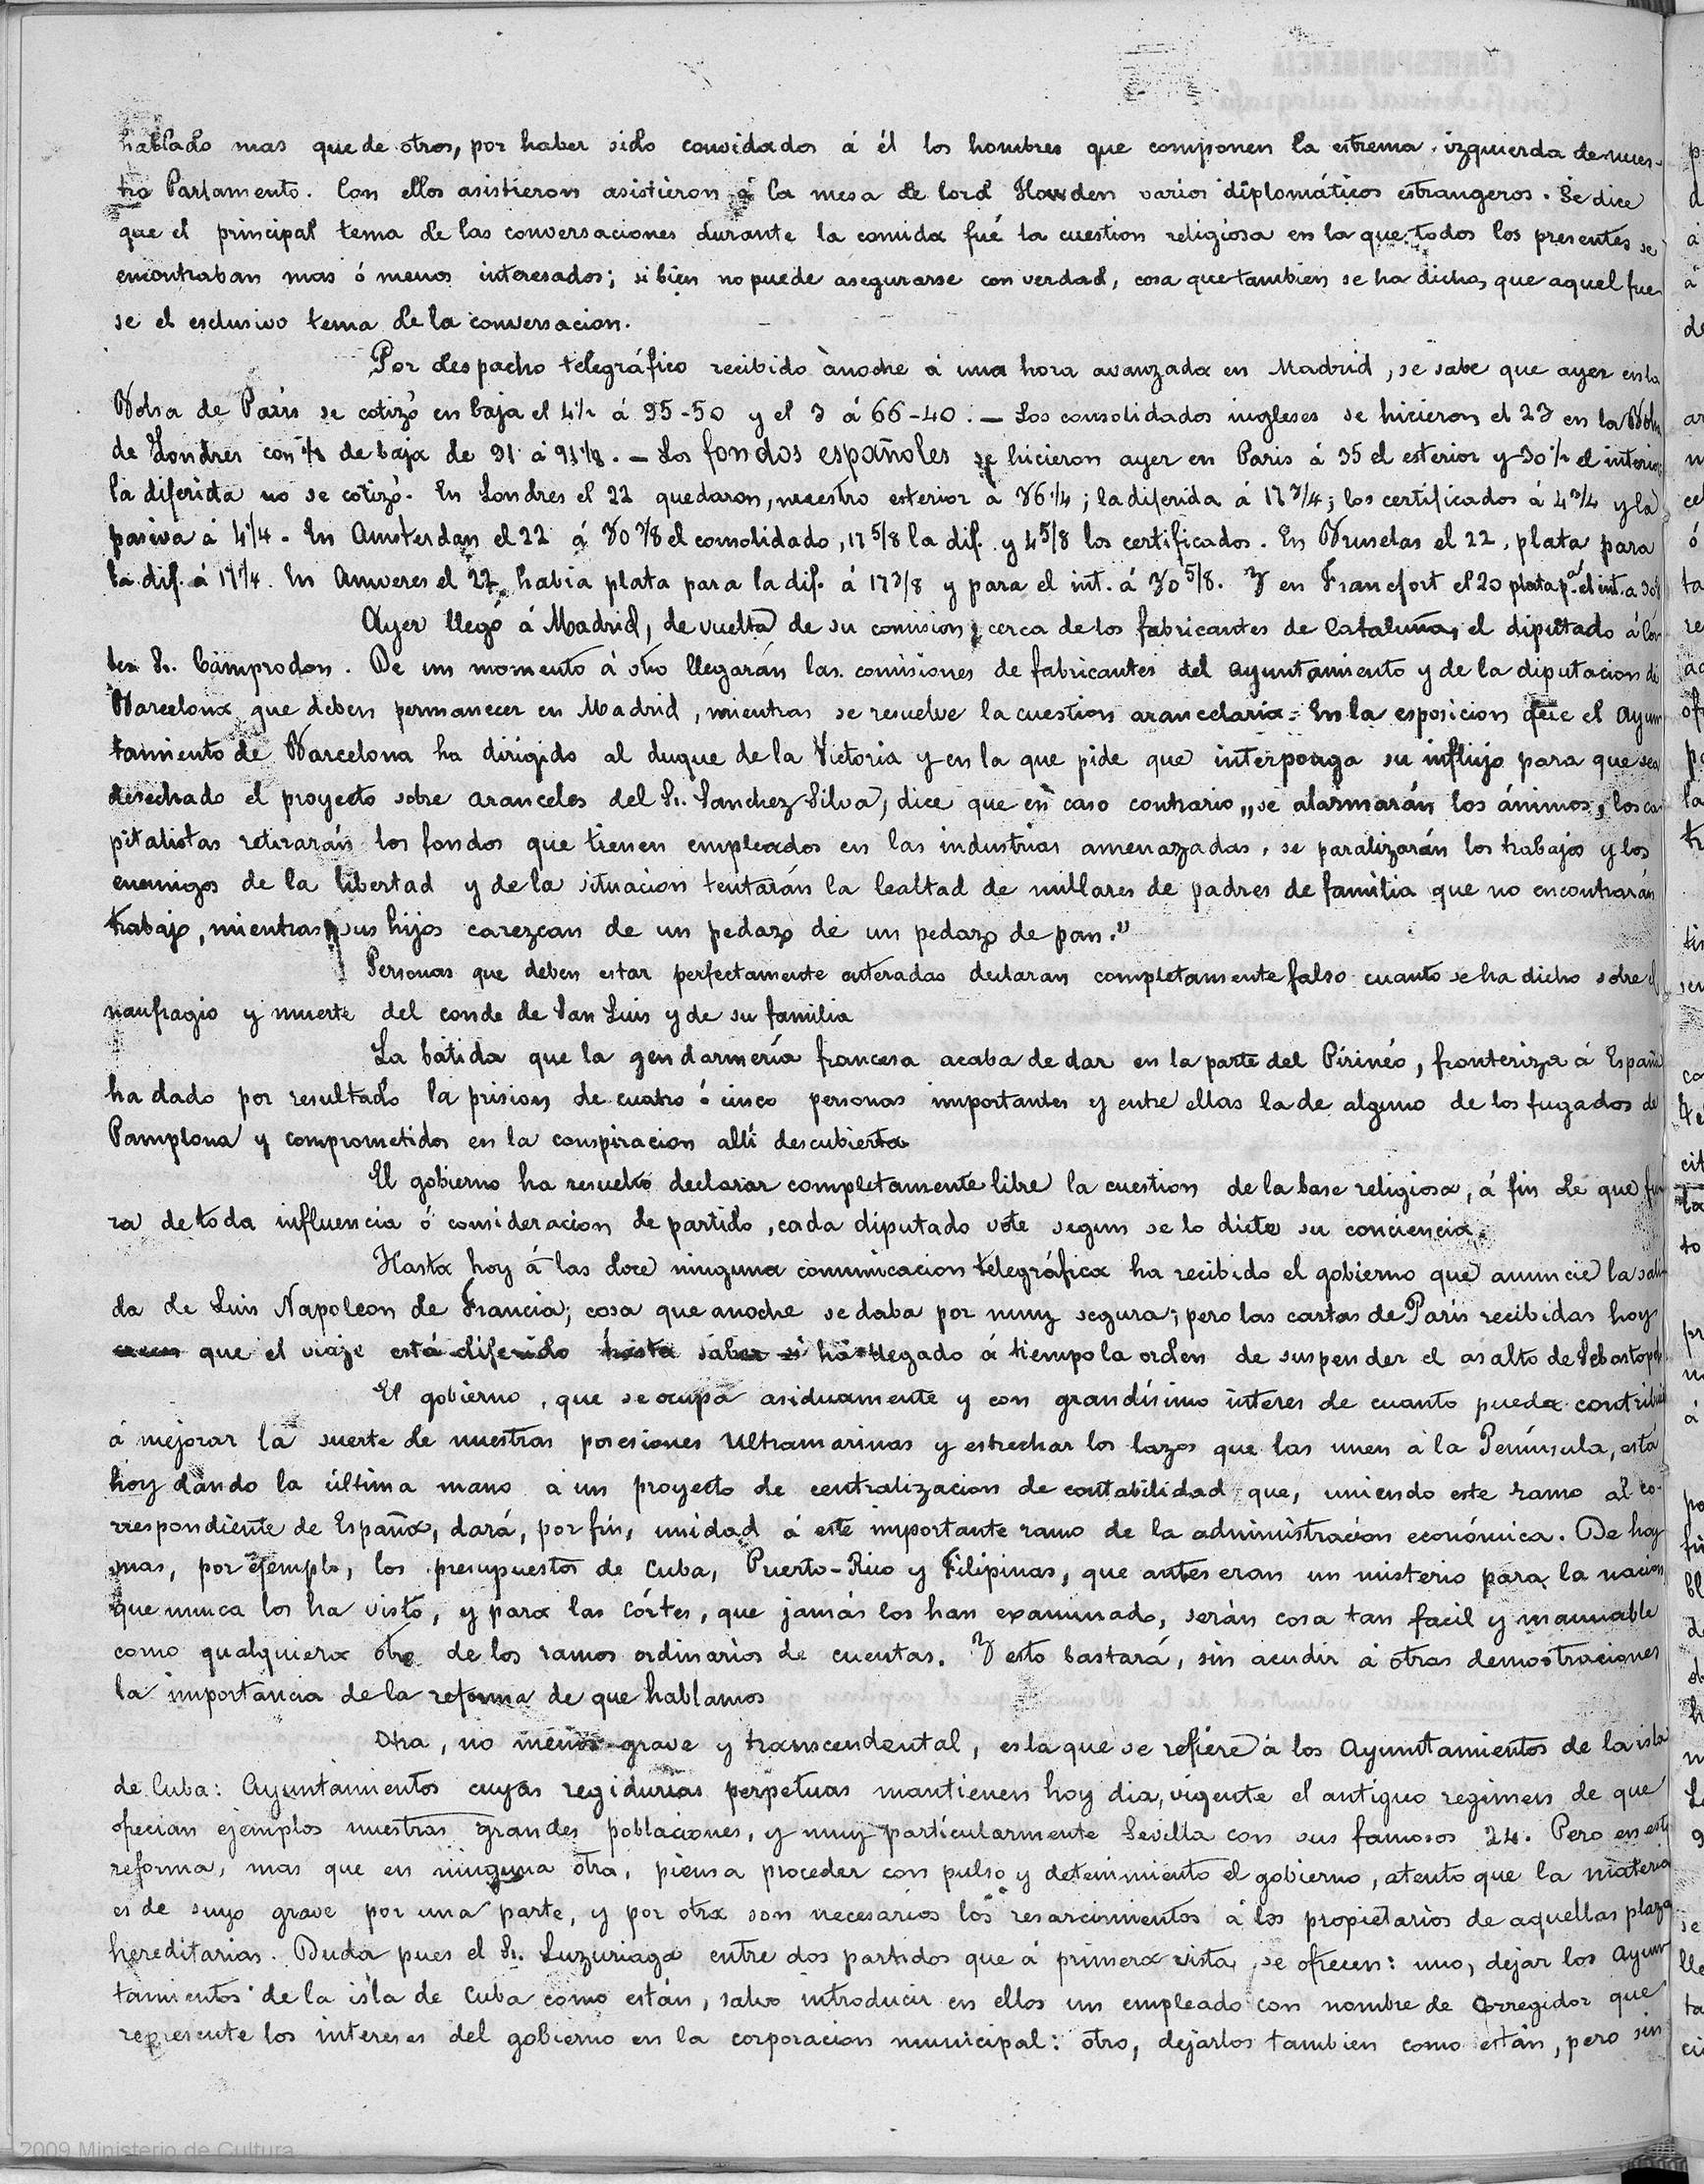 hablado mas que de otros, por haber sido convidados á él los hombres que componen la estrema izquierda de nues-
tro Parlamento. Con ellos asistieron asistieron á la mesa de lord Howden varios diplomáticos estrangeros. Se dice
que el principal tema de las conversaciones durante la comida fué la cuestion religiosa en la que todos los presentes se
encontraban mas ó menos interesados; si bien no puede asegurarse con verdad, cosa que tambien se ha dicho, que aquel fue-
se el esclusivo tema de la conversacion.
Por despacho telegráfico recibido anoche á una hora avanzada en Madrid, se sabe que ayer en la
Bolsa de Paris se cotizó en baja el 4½ á 95-50 y el 3 á 66-40. — Los consolidados ingleses se hicieron el 23 en la Bolsa
de Londres con de baja de 91 á 91⅛. — Los fondos españoles se hicieron ayer en Paris á 35 el esterior y 30½ el interior;
la diferida no se cotizó. En Londres el 22 quedaron, nuestro esterior á 36¼; la diferida á 17¾; los certificados á 4¾ y la
pasiva á 4¼. En Amsterdan el 22 á 30⅞ el consolidado, 17⅝ la dif. y 4⅝ los certificados. En Bruselas el 22, plata para
la dif. á 17¼. En Amveres el 22, habia plata para la dif. á 17⅜ y para el int. á 30⅝. Y en Francfort el 20 plata p.ª el int. a
Ayer llegó á Madrid, de vuelta de su comision cerca de los fabricantes de Cataluña, el diputado á Cór-
tes Sr. Camprodon. De un momento á otro llegarán las comisiones de fabricantes del ayuntamiento y de la diputacion de
Barcelona que deben permanecer en Madrid, mientras se resuelve la cuestion arancelaria. En la esposicion que el Ayun-
tamiento de Barcelona ha dirigido al duque de la Victoria y en la que pide que interponga su influjo para que sea
desechado el proyecto sobre aranceles del Sr. Sanchez Silva, dice que en caso contrario „se alarmarán los ánimos, los ca-
pitalistas retirarán los fondos que tienen empleados en las industrias amenazadas, se paralizarán los trabajos y los
enemigos de la libertad y de la situacion tentarán la lealtad de millares de padres de familia que no encontrarán
trabajo, mientras sus hijos carezcan de un pedazo de un pedazo de pan."
Personas que deben estar perfectamente enteradas declaran completamente falso cuanto se ha dicho sobre el
naufragio y muerte del conde de San Luis y de su familia
La batida que la gendarmería francesa acaba de dar en la parte del Pirinéo, fronteriza á España
ha dado por resultado la prision de cuatro ó cinco personas importantes y entre ellas la de alguno de los fugados de
Pamplona y comprometidos en la conspiracion allí descubierta
El gobierno ha resuelto declarar completamente libre la cuestion de la base religiosa, á fin de que fue-
ra de toda influencia ó consideracion de partido, cada diputado vote segun se lo dicte su conciencia.
Hasta hoy á las doce ninguna comunicacion telegráfica ha recibido el gobierno que anuncie la sali-
da de Luis Napoleon de Francia; cosa que anoche se daba por muy segura; pero las cartas de Paris recibidas hoy
que el viaje está diferido hasta saber si ha llegado á tiempo la orden de suspender el asalto de Sebastopol.
El gobierno, que se ocupa asiduamente y con grandísimo interes de cuanto pueda contribuir
á mejorar la suerte de nuestras posesiones Ultramarinas y estrechar los lazos que las unen á la Península, está
hoy dando la última mano á un proyecto de centralizacion de contabilidad que, uniendo este ramo al co-
rrespondiente de España, dará, por fin, unidad á este importante ramo de la administracion económica. De hoy
mas, por ejemplo, los presupuestos de Cuba, Puerto-Rico y Filipinas, que antes eran un misterio para la nacion
que nunca los ha visto, y para las Córtes, que jamás los han examinado, serán cosa tan facil y manuable
como qualquiera otro de los ramos ordinarios de cuentas. Y esto bastará, sin acudir á otras demostraciones
la importancia de la reforma de que hablamos
Otra, no menos grave y transcendental, es la que se refiere á los Ayuntamientos de la isla
de Cuba: Ayuntamientos cuyas regidurias perpetuas mantienen hoy dia, vigente el antiguo regimen de que
ofrecian ejemplos nuestras grandes poblaciones, y muy particularmente Sevilla con sus famosos 24. Pero en esta
reforma, mas que en ninguna otra, piensa proceder con pulso y detenimiento el gobierno, atento que la materia
es de suyo grave por una parte, y por otra son necesarios los resarcimientos á los propietarios de aquellas plazas
hereditarias. Duda pues el Sr. Luzuriaga entre dos partidos que á primera vista se ofrecen: uno, dejar los Ayun-
tamientos de la isla de Cuba como están, salvo introducir en ellos un empleado con nombre de Corregidor que
represente los intereses del gobierno en la corporacion municipal: otro, dejarlos tambien como están, pero sin
2009 Ministerio de Cultura